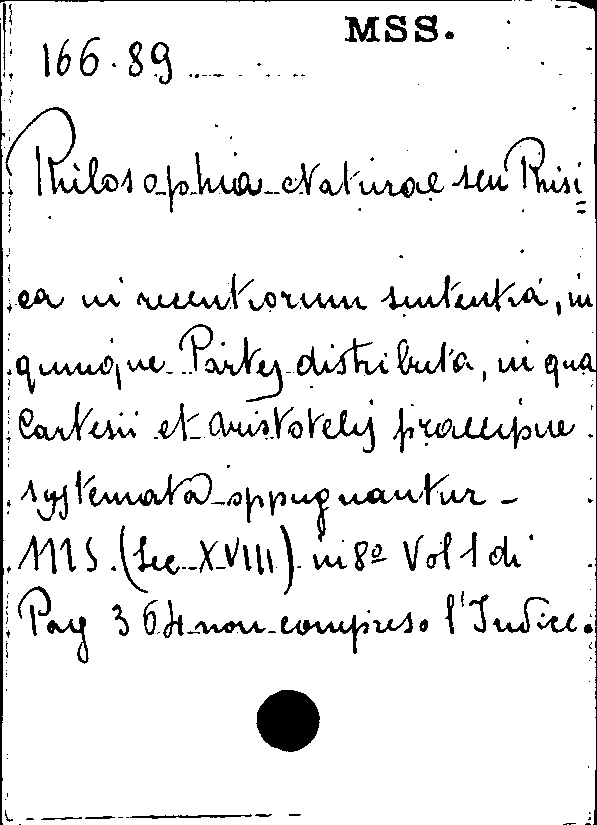 MSS.
166.89
Philosophia Naturae seu Phisi=
ca in recentiorum sententia, in
quinque Partes distributa, in qua
Cartesii et Aristotelis praecipue
systemata oppugnantur -
MS. (Sec. XVIII) in 8º Vol 1 di
Pag 364 non compreso l'Indice.